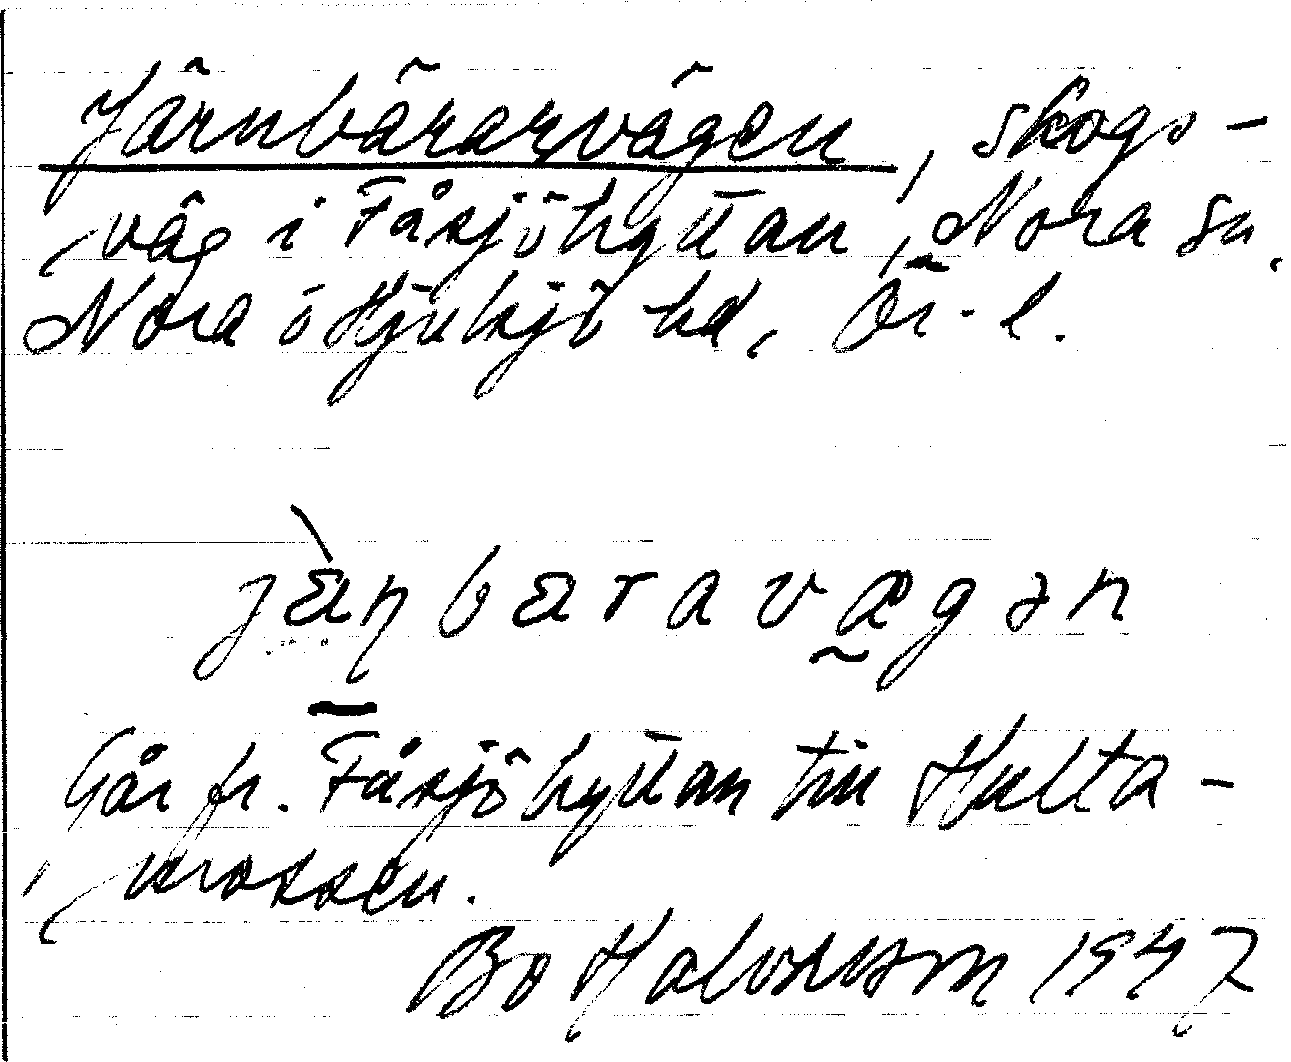 Järnbärarvägen, skogs-
väg i Fåsjöhyttan, Nora sn.
Nora o Hjulsjö hd, Ör. l.
jæ̀ṇbæravægən
Går fr. Fåsjöhyttan till Hulta-
mossen.
Bo Halvorsson 1947